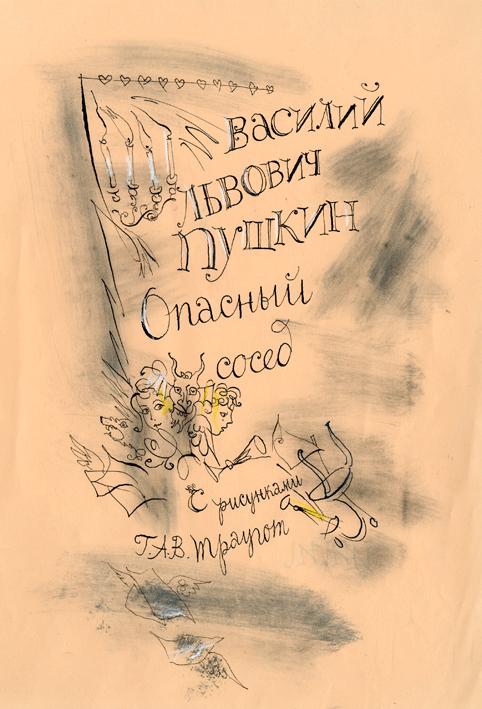 Василий
Львович
Пушкин
Опасный
сосед
С рисунками
Г.А.В. Траугот